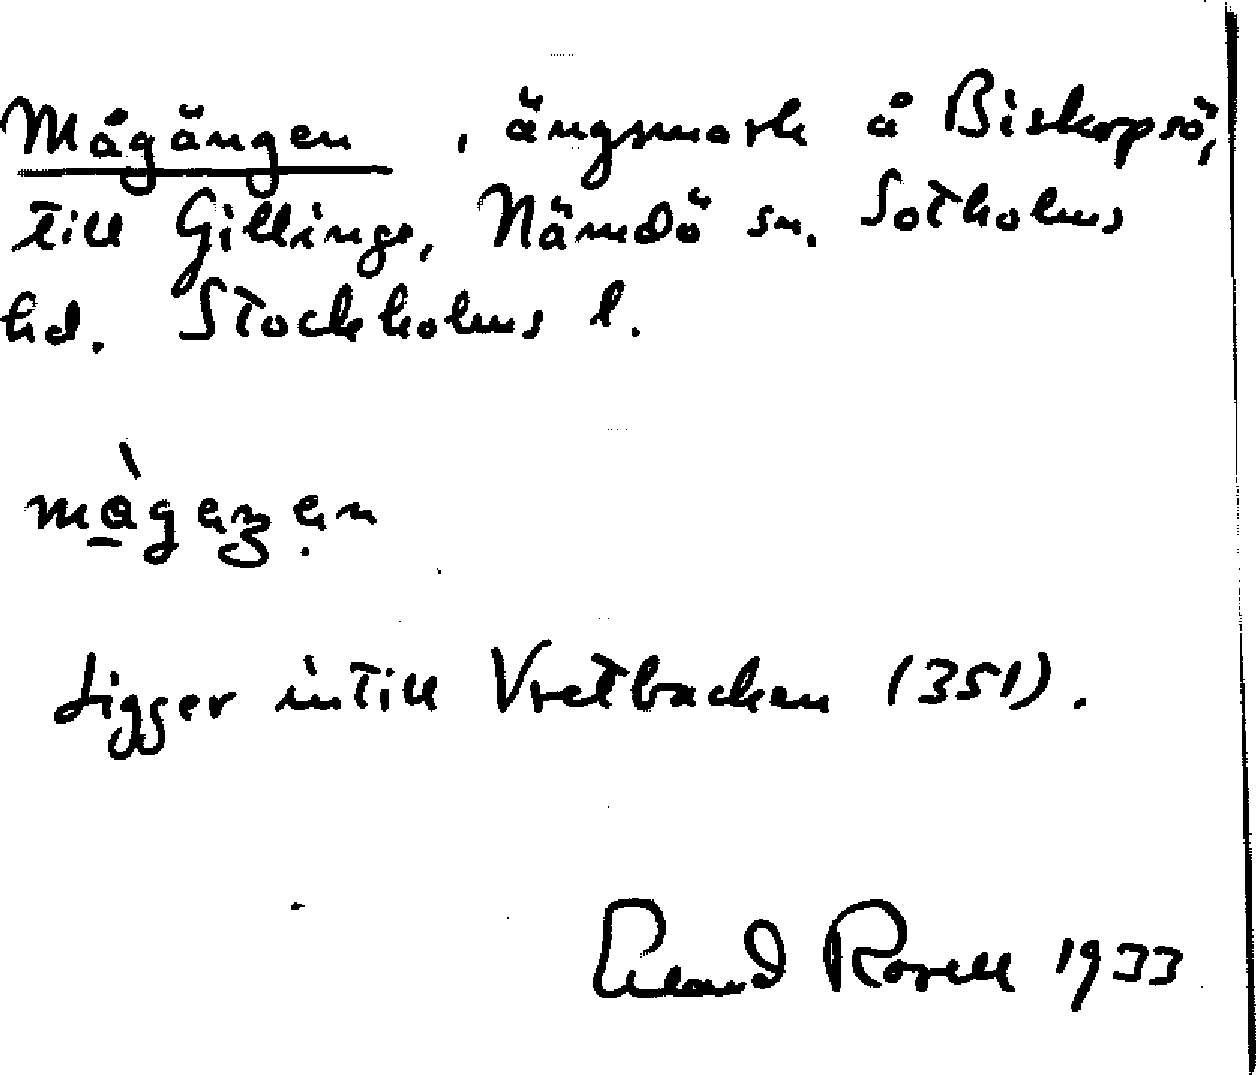 Mågängen, ängsmark å Biskopsö,
till Gillinge, Nämdö sn. Sotholms
hd. Stockholms l.
Ligger intill Vretbacken (351).
Erland Rosell 1933